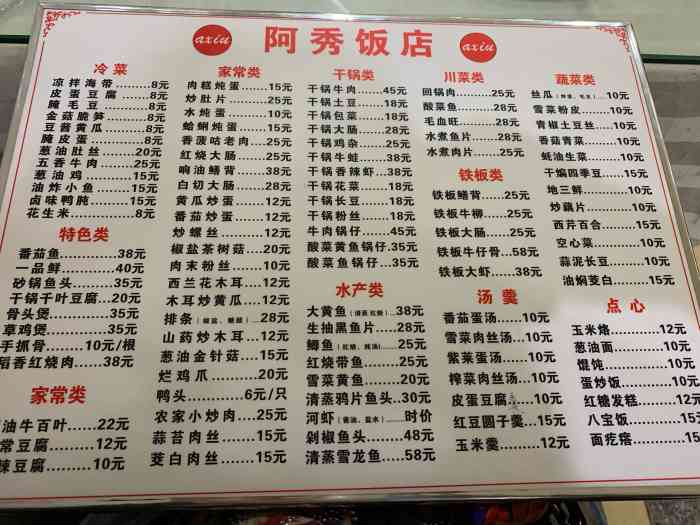 axiu
阿秀饭店
axiu
冷菜
凉拌海带............8元
皮蛋豆腐............8元
腌毛豆............8元
金菇脆笋............8元
豆酱黄瓜............8元
腌皮蛋............8元
葱油肚丝............20元
五香牛肉............25元
葱油鸡............15元
油炸小鱼............15元
卤味鸭肫............15元
花生米............8元
特色类
番茄鱼............38元
一品鲜............40元
砂锅鱼头............35元
干锅千叶豆腐...20元
骨头煲............35元
草鸡煲............35元
手抓骨............10元/根
稻香红烧肉......38元
家常类
油牛百叶......22元
常豆腐......12元
辣豆腐......10元
家常类
肉糕炖蛋......15元
炒肚片......25元
水炖蛋......10元
蛤蜊炖蛋......15元
香菠咕老肉...25元
红烧大肠......25元
响油鳝背......38元
白切大肠......28元
黄瓜炒蛋......12元
番茄炒蛋......12元
炒螺丝......12元
椒盐茶树菇...20元
肉末粉丝......10元
西兰花木耳...12元
木耳炒黄瓜...12元
排条（椒盐、糖醋）...28元
山药炒木耳...12元
葱油金针菇...15元
烂鸡爪......20元
鸭头......6元/只
农家小炒肉...25元
蒜苔肉丝......15元
茭白肉丝......15元
干锅类
干锅牛肉......45元
干锅土豆......18元
干锅包菜......18元
干锅大肠......28元
干锅鸡杂......25元
干锅牛蛙......38元
干锅香辣虾...38元
干锅花菜......18元
干锅长豆......18元
干锅粉丝......18元
牛肉锅仔......35元
酸菜黄鱼锅仔.35元
酸菜大肠锅仔.35元
水产类
大黄鱼（清蒸.红烧）...38元
生抽黑鱼片......28元
鲫鱼（红烧、炖汤）...25元
红烧带鱼......25元
雪菜黄鱼......20元
清蒸鸦片鱼头...30元
河虾（酱油、盐水）......时价
剁椒鱼头......48元
清蒸雪龙鱼......58元
川菜类
回锅肉......25元
酸菜鱼......28元
毛血旺......28元
水煮鱼片......28元
水煮肉片......25元
铁板类
铁板鳝背......25元
铁板牛柳......25元
铁板大肠......25元
铁板牛仔骨...58元
铁板大虾......38元
汤羹
番茄蛋汤......10元
雪菜肉丝汤...10元
紫菜蛋汤......10元
榨菜肉丝汤...10元
皮蛋豆腐羹...10元
红豆圆子羹...15元
玉米羹......12元
蔬菜类
丝瓜......10元
雪菜粉皮......10元
青椒土豆丝...10元
香菇青菜......10元
蚝油生菜......10元
干煸四季豆...15元
地三鲜......10元
炒藕片......10元
西芹百合......15元
空心菜......10元
蒜泥长豆......10元
油焖茭白......15元
点心
玉米烙......12元
葱油面......10元
馄饨......10元
蛋炒饭......10元
红糖发糕......12元
八宝饭......15元
面疙瘩......15元